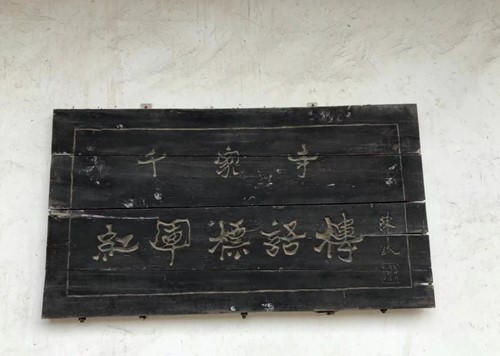 千家寺
紅軍標語樓